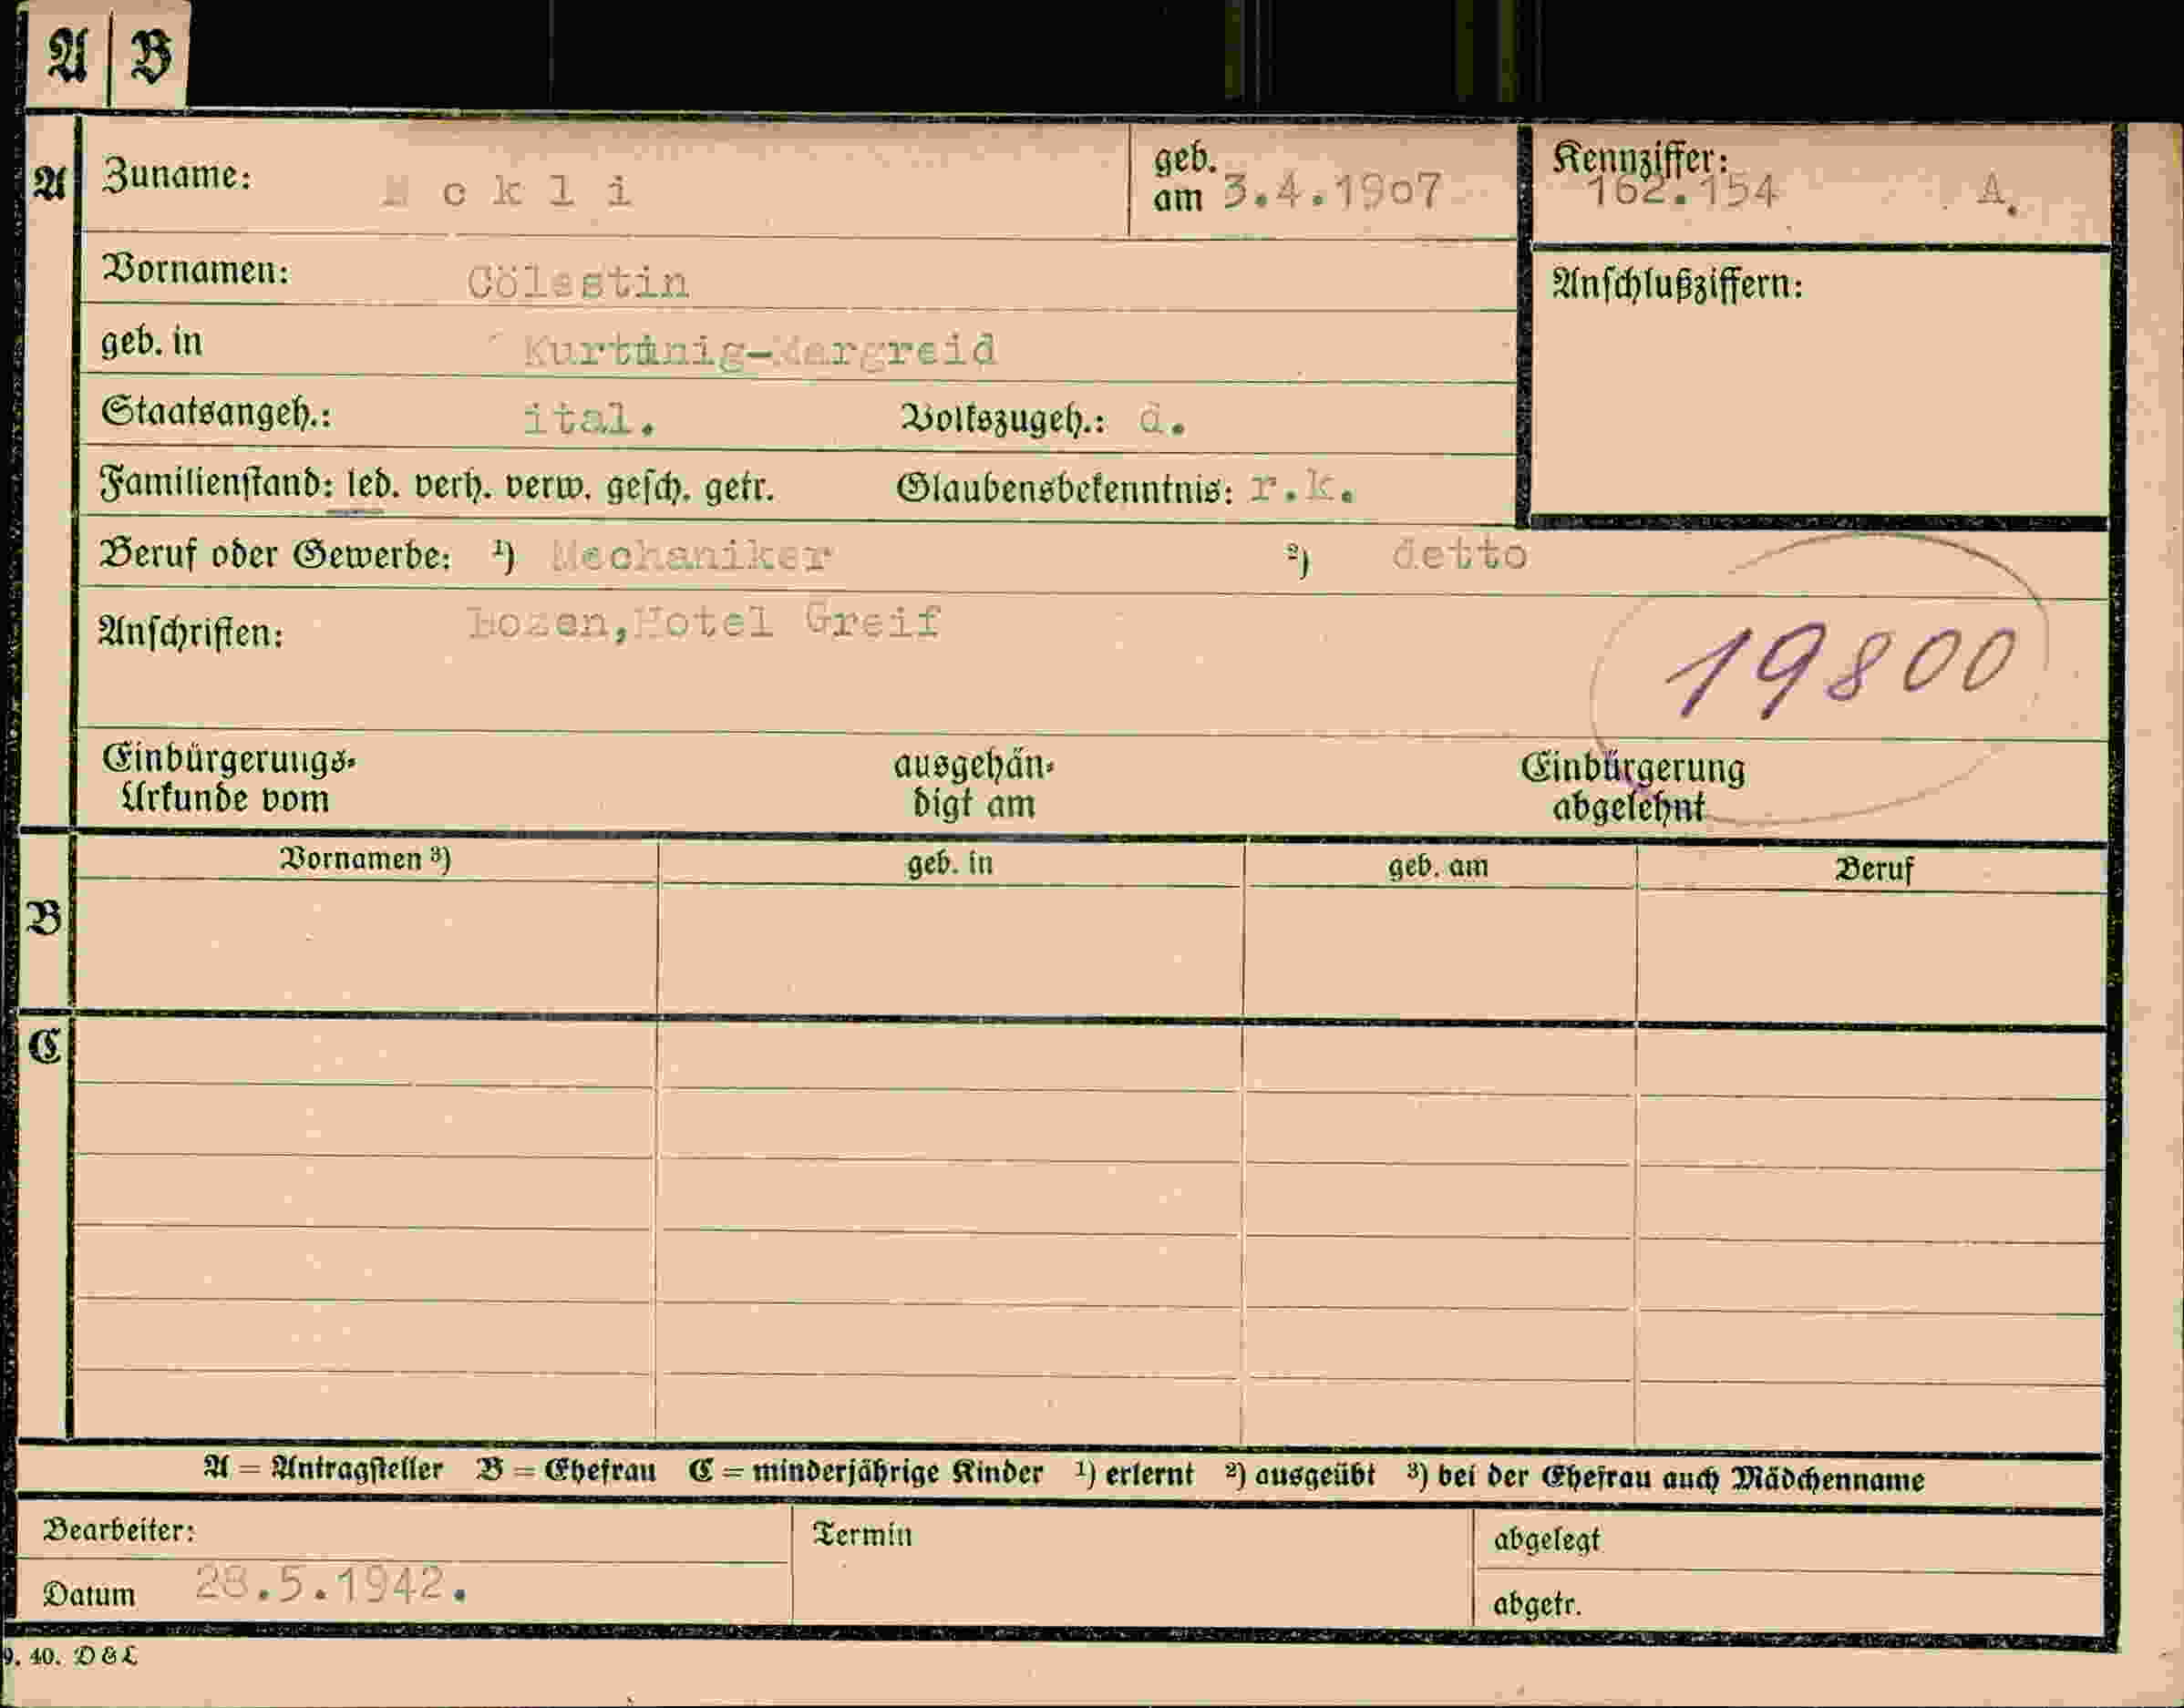 A B
A Zuname: E c k l i geb. am 3.4.1907 Kennziffer: 162.154 A.
Vornamen: Cölestin Anschlußziffern:
geb. in Kurtinig-Margreid
Staatsangeh.: ital. Volkszugeh.: d.
Familienstand: led. verh. verw. gesch. getr. Glaubensbekenntnis: r.k.
Beruf oder Gewerbe: ¹) Mechaniker ²) detto
Anschriften: Bozen,Hotel Greif
19800
Einbürgerungs- ausgehän- Einbürgerung
Urkunde vom digt am abgelehnt
Vornamen ³) geb. in geb. am Beruf
B
C
A = Antragsteller B = Ehefrau C = minderjährige Kinder ¹) erlernt ²) ausgeübt ³) bei der Ehefrau auch Mädchenname
Bearbeiter: Termin abgelegt
Datum 28.5.1942. abgetr.
9. 40. D & L